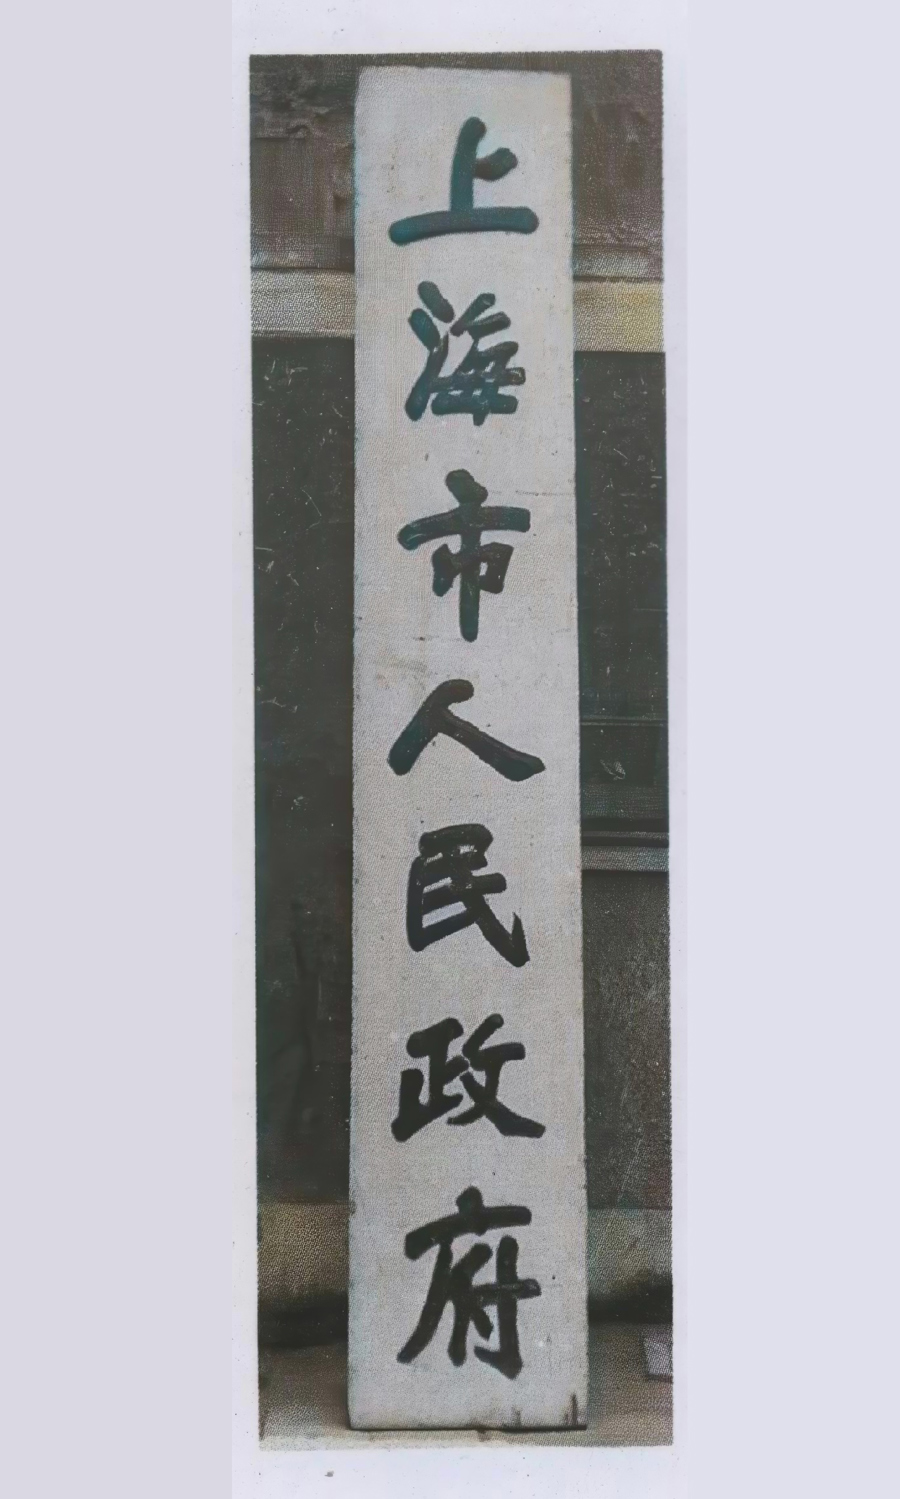 上海市人民政府